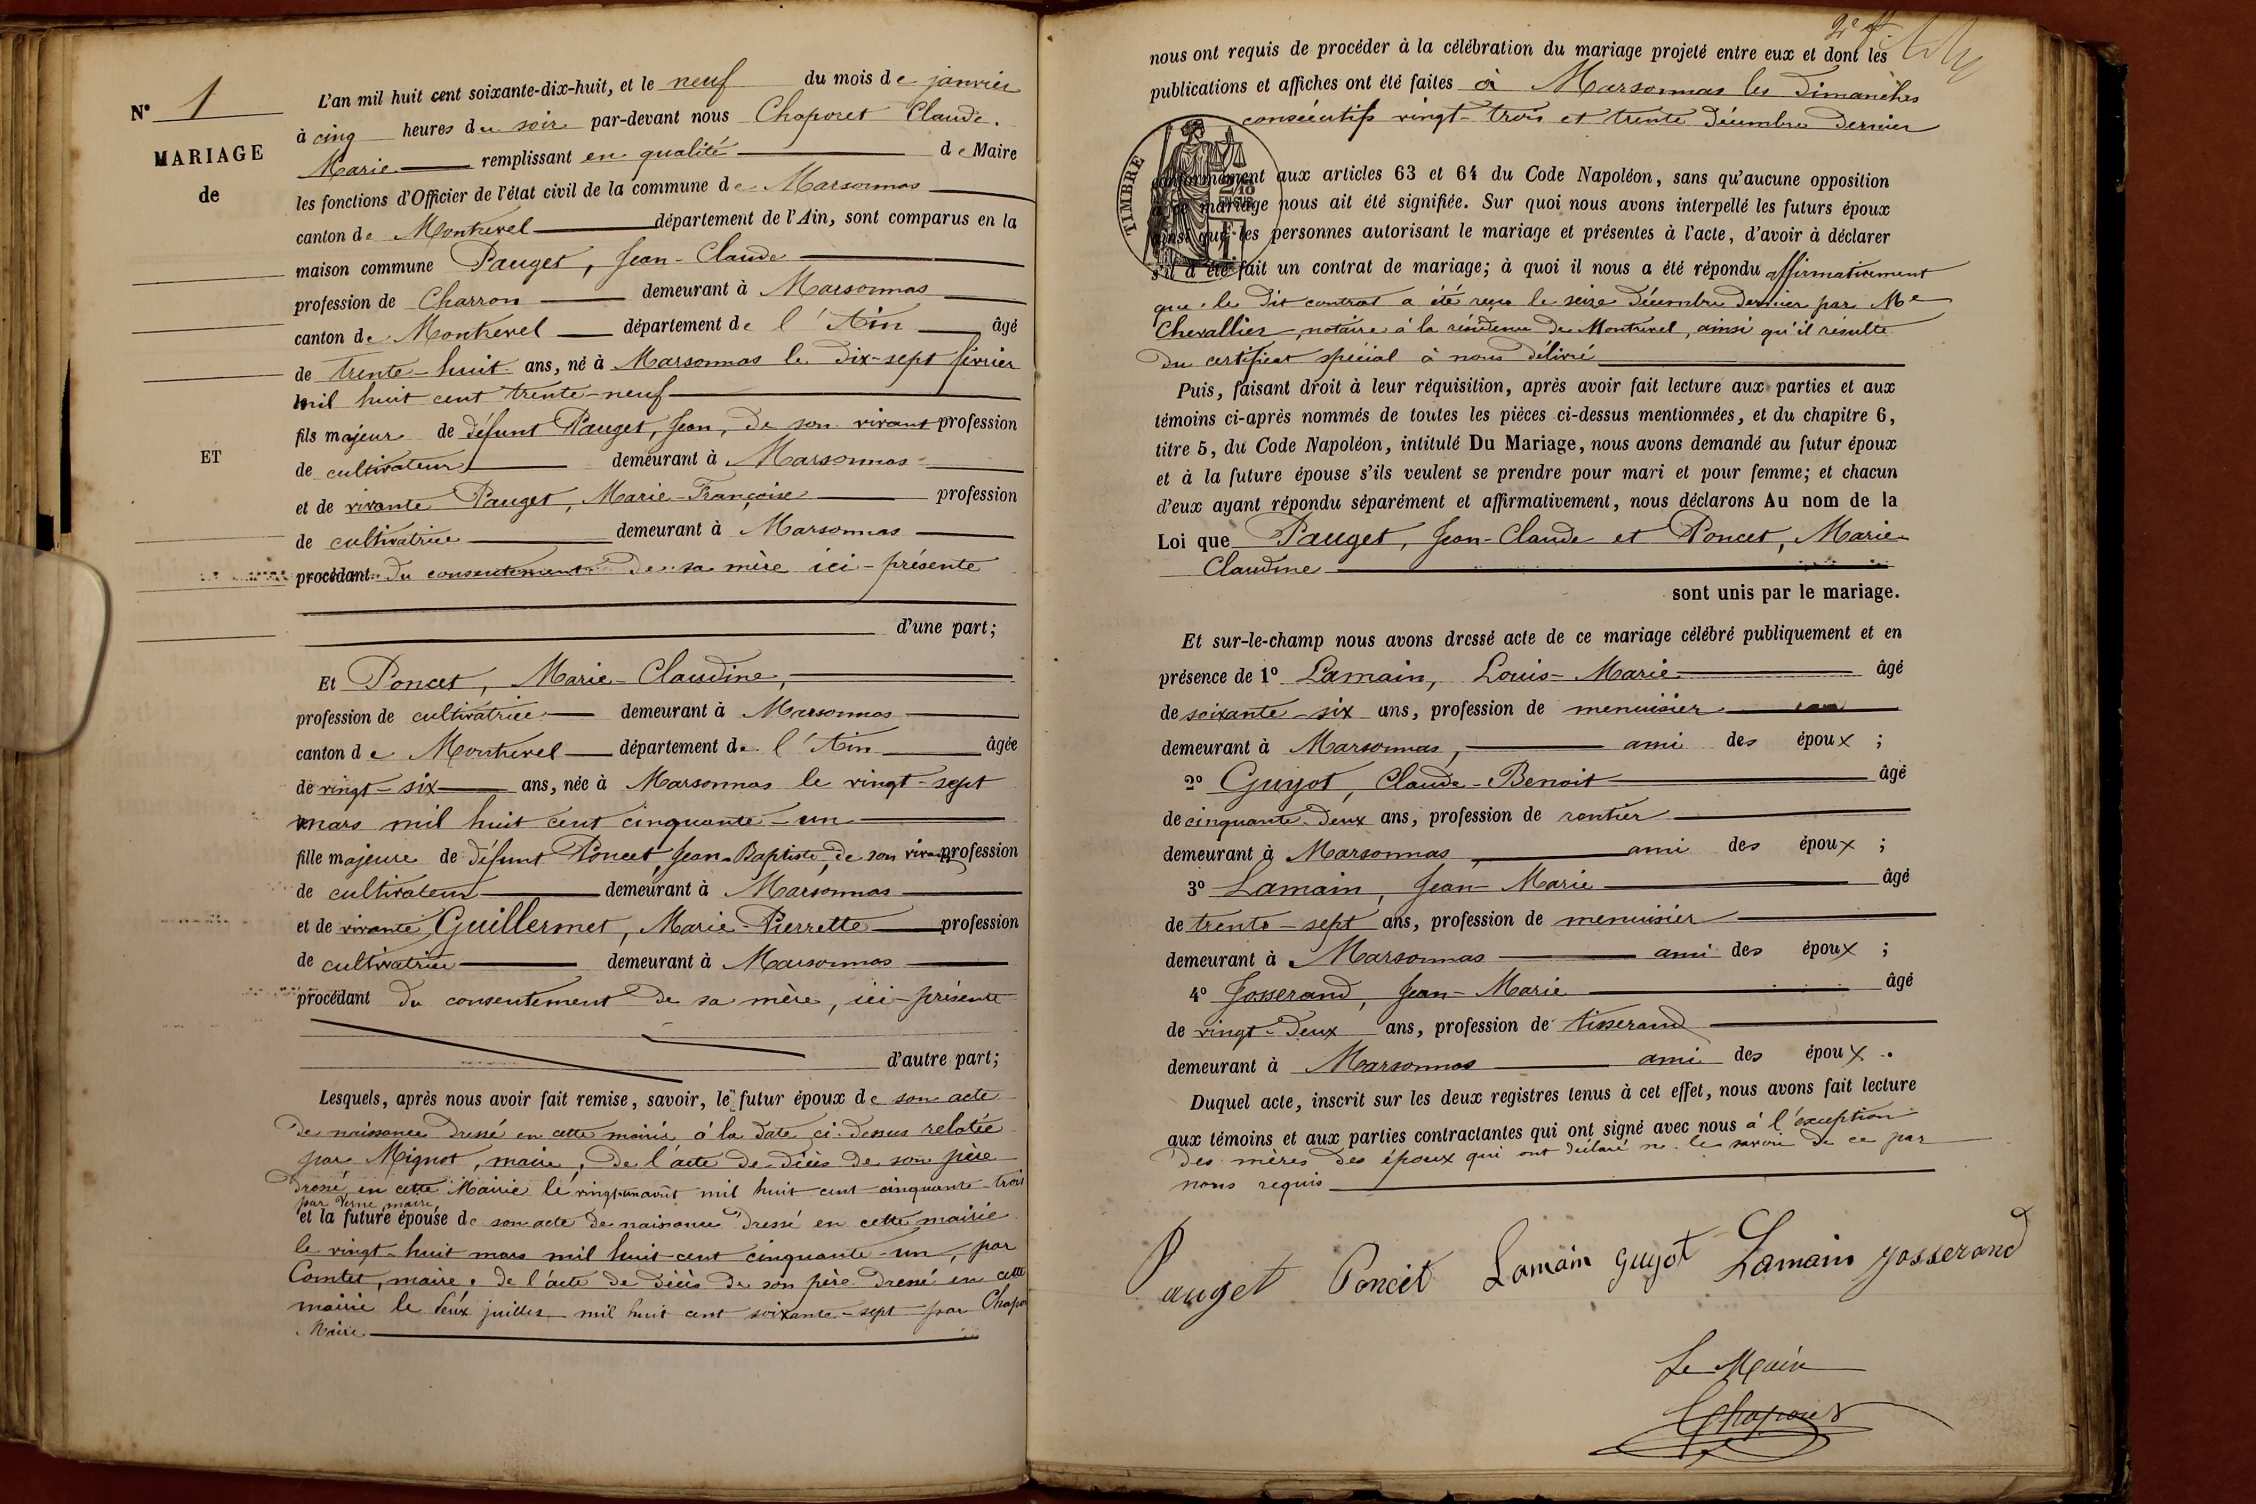 N° 1
MARIAGE
de
ET
L'an mil huit cent soixante-dix-huit, et le neuf du mois de janvier
à cinq heures du soir par-devant nous Chaporet Claude.
Marie remplissant en qualité de Maire
les fonctions d'Officier de l'état civil de la commune de Marsonnas
canton de Montrevel département de l'Ain, sont comparus en la
maison commune Pauget, Jean-Claude
profession de Charron demeurant à Marsonnas
canton de Montrevel département de l'Ain âgé
de trente-huit ans, né à Marsonnas le dix-sept février
mil huit cent trente-neuf
fils majeur de défunt Pauget, Jean, de son vivant profession
de cultivateur demeurant à Marsonnas
et de vivante Pauget, Marie-Françoise profession
de cultivatrice demeurant à Marsonnas
procédant du consentement de sa mère ici-présente
d'une part;
Et Poncet, Marie-Claudine,
profession de cultivatrice demeurant à Marsonnas
canton de Montrevel département de l'Ain âgée
de vingt-six ans, née à Marsonnas le vingt-sept
mars mil huit cent cinquante-un
fille majeure de défunt Poncet Jean-Baptiste, de son vivant profession
de cultivateur demeurant à Marsonnas
et de vivante Guillermet, Marie-Pierrette profession
de cultivatrice demeurant à Marsonnas
procédant du consentement de sa mère, ici-présente
d'autre part;
Lesquels, après nous avoir fait remise, savoir, le futur époux de son acte
de naissance dressé en cette mairie à la date ci-dessus relatée
par Mignot, maire, de l'acte de décès de son père
dressé en cette Mairie le vingt-un août mil huit cent cinquante-trois
par Verne, maire,
et la future épouse de son acte de naissance dressé en cette mairie
le vingt-huit mars mil huit-cent cinquante-un, par
Comtet, maire, de l'acte de décès de son père dressé en cette
mairie le deux juillet mil huit cent soixante-sept par Chapo
Maire
nous ont requis de procéder à la célébration du mariage projeté entre eux et dont les
publications et affiches ont été faites à Marsonnas les dimanches
consécutifs vingt-trois et trente décembre dernier
TIMBRE
conformément aux articles 63 et 64 du Code Napoléon, sans qu'aucune opposition
à ce mariage nous ait été signifiée. Sur quoi nous avons interpellé les futurs époux
ainsi que les personnes autorisant le mariage et présentes à l'acte, d'avoir à déclarer
s'il a été fait un contrat de mariage; à quoi il nous a été répondu affirmativement
que le dit contrat a été reçu le seize décembre dernier par Me
Chevallier, notaire à la résidence de Montrevel, ainsi qu'il résulte
du certificat spécial à nous délivré
Puis, faisant droit à leur réquisition, après avoir fait lecture aux parties et aux
témoins ci-après nommés de toutes les pièces ci-dessus mentionnées, et du chapitre 6,
titre 5, du Code Napoléon, intitulé Du Mariage, nous avons demandé au futur époux
et à la future épouse s'ils veulent se prendre pour mari et pour femme; et chacun
d'eux ayant répondu séparément et affirmativement, nous déclarons Au nom de la
Loi que Pauget, Jean-Claude et Poncet, Marie-
Claudine
sont unis par le mariage.
Et sur-le-champ nous avons dressé acte de ce mariage célébré publiquement et en
présence de 1° Lamain, Louis-Marie âgé
de soixante-six ans, profession de menuisier
demeurant à Marsonnas, ami des époux ;
2° Guyot, Claude-Benoit âgé
de cinquante-deux ans, profession de rentier
demeurant à Marsonnas, ami des époux ;
3° Lamain, Jean-Marie âgé
de trente-sept ans, profession de menuisier
demeurant à Marsonnas ami des époux ;
4° Josserand, Jean-Marie âgé
de vingt-deux ans, profession de tisserand
demeurant à Marsonnas ami des époux.
Duquel acte, inscrit sur les deux registres tenus à cet effet, nous avons fait lecture
aux témoins et aux parties contractantes qui ont signé avec nous à l'exception
des mères des époux qui ont déclaré ne le savoir de ce par
nous requis
Pauget Poncet Lamain guyot Lamain Josserand
Le Maire
Chaporet